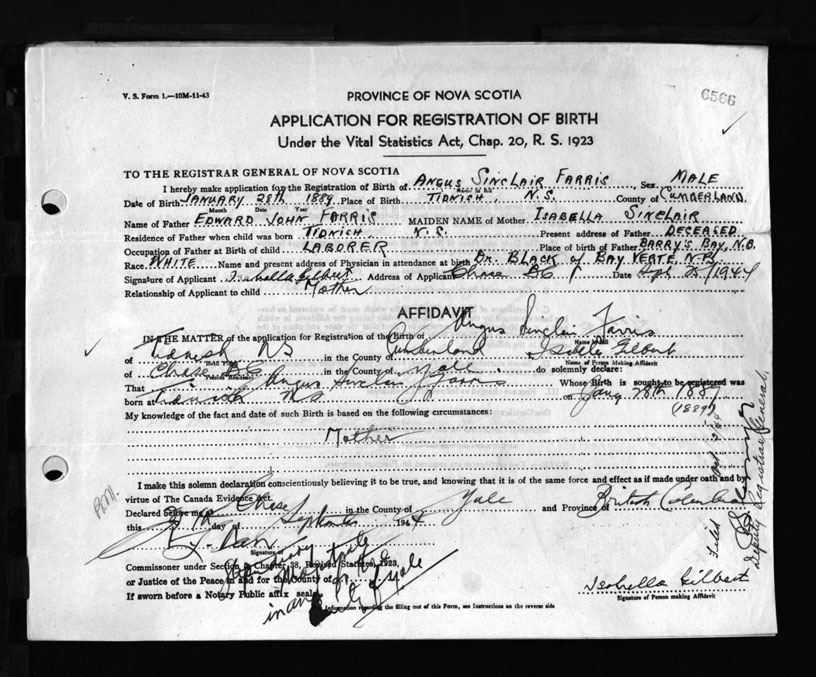 V. S. Form 1.—10M-11-43
6566
PROVINCE OF NOVA SCOTIA
APPLICATION FOR REGISTRATION OF BIRTH
Under the Vital Statistics Act, Chap. 20, R. S. 1923
TO THE REGISTRAR GENERAL OF NOVA SCOTIA
I hereby make application for the Registration of Birth of ANGUS SINCLAIR FARRIS Sex MALE
Date of Birth JANUARY 28th 1889 Place of Birth TIDNISH, N.S. County of CUMBERLAND
Month Date Year
Name of Father EDWARD JOHN FARRIS MAIDEN NAME of Mother ISABELLA SINCLAIR
Residence of Father when child was born TIDNISH, N.S. Present address of Father DECEASED
Occupation of Father at Birth of child LABORER Place of birth of Father BARRY'S BAY, N.B.
Race WHITE Name and present address of Physician in attendance at birth Dr. BLACK of BAY VERTE, N.B.
Signature of Applicant Isabella Gilbert Address of Applicant Chase BC Date Sept 1944
Relationship of Applicant to child Mother
AFFIDAVIT
IN THE MATTER of the application for Registration of the Birth of Angus Sinclair Farris
of Tidnish NS in the County of Cumberland Gilbert
Name of Person Making Affidavit
of Chase BC in the County of Yale do solemnly declare:
That Angus Sinclair Farris Whose Birth is sought to be registered was
born at Tidnish NS on Jany 28th 1889
(1889)
My knowledge of the fact and date of such Birth is based on the following circumstances:
Mother
I make this solemn declaration conscientiously believing it to be true, and knowing that it is of the same force and effect as if made under oath and by
virtue of The Canada Evidence Act.
Declared before me at Chase in the County of Yale and Province of British Columbia
this day of September 1944
Signature of
Commissioner under Section Chapter 38, Revised Statutes, 1923,
or Justice of the Peace in and for the County of Yale
If sworn before a Notary Public affix seal.
in and
Information regarding the filling out of this Form, see Instructions on the reverse side
Isabella Gilbert
Signature of Person making Affidavit
Filed
Deputy Registrar General.